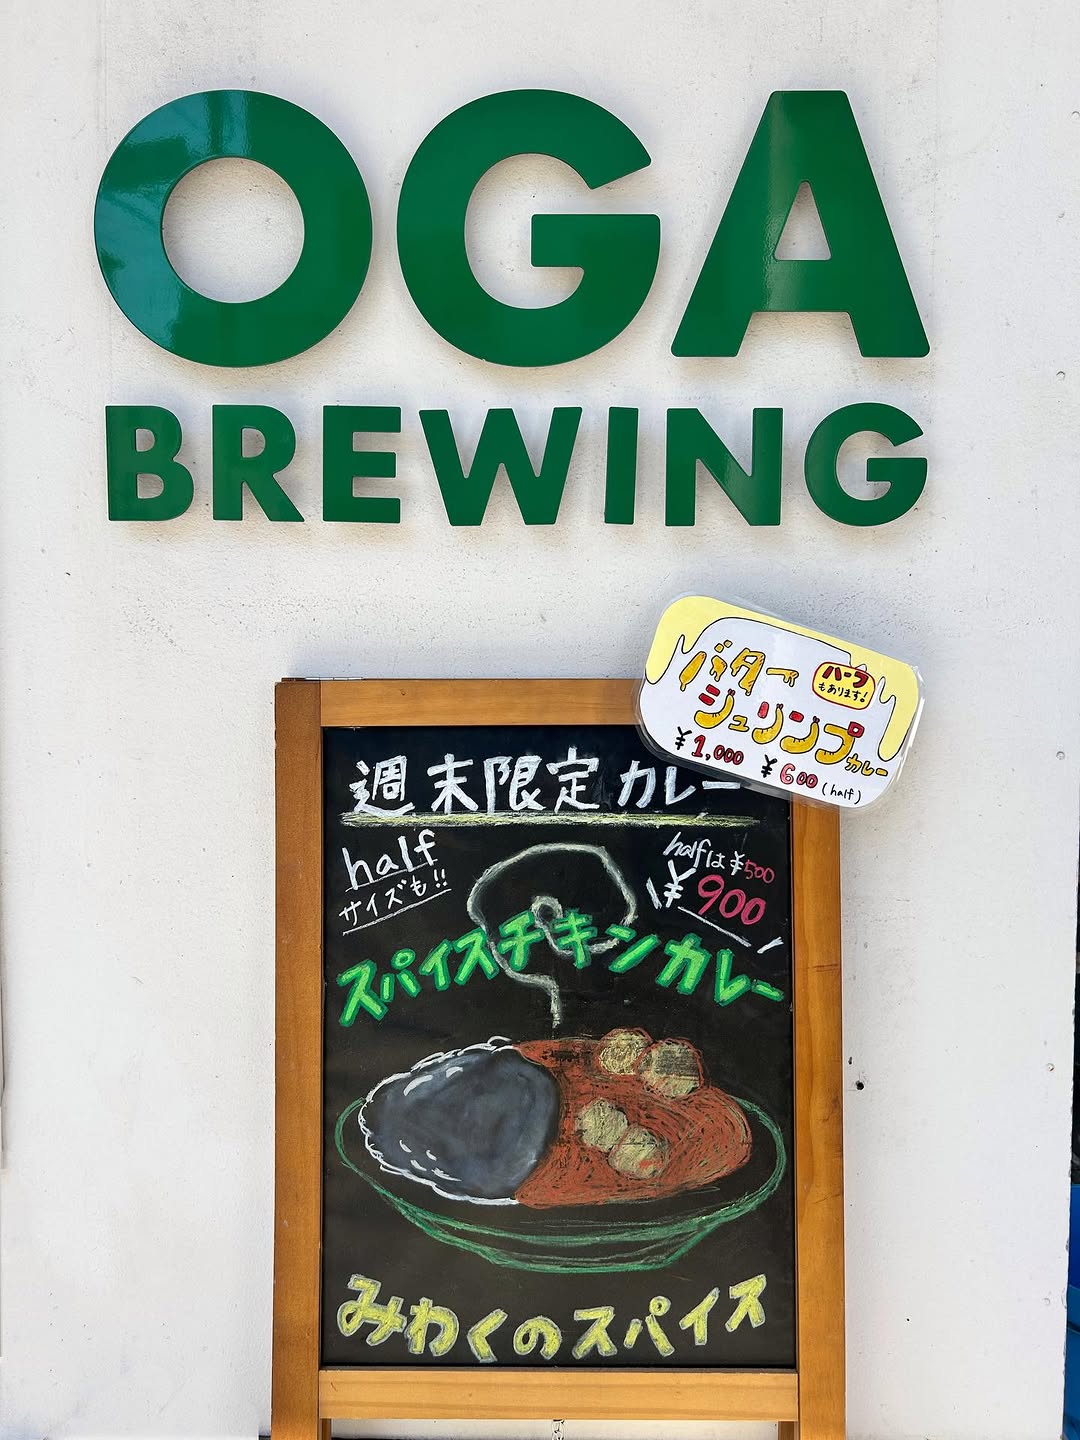 OGA
BREWING
バター
ハーフ
もあります!
ジュリンプカレー
¥1,000 ¥600 (half)
週末限定カレー
half
サイズも!!
halfは¥500
¥900
スパイスチキンカレー
みわくのスパイス